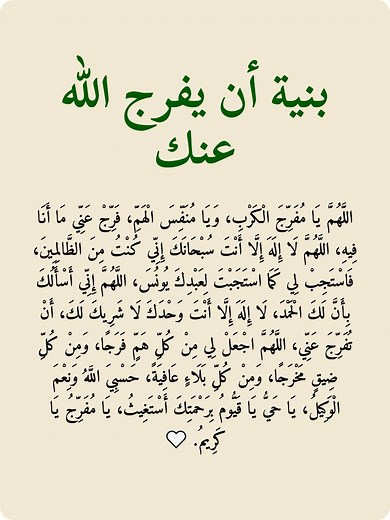 بنية أن يفرج الله
عنك
اللَّهُمَّ يَا مُفَرِّجَ الْكَرْبِ، وَيَا مُنَفِّسَ الْهَمِّ، فَرِّجْ عَنِّي مَا أَنَا
فِيهِ، اللَّهُمَّ لَا إِلَهَ إِلَّا أَنْتَ سُبْحَانَكَ إِنِّي كُنْتُ مِنَ الظَّالِمِينَ،
فَاسْتَجِبْ لِي كَمَا اسْتَجَبْتَ لِعَبْدِكَ يُونُسَ، اللَّهُمَّ إِنِّي أَسْأَلُكَ
بِأَنَّ لَكَ الْحَمْدَ، لَا إِلَهَ إِلَّا أَنْتَ وَحْدَكَ لَا شَرِيكَ لَكَ، أَنْ
تُفَرِّجَ عَنِّي، اللَّهُمَّ اجْعَلْ لِي مِنْ كُلِّ هَمٍّ فَرَجًا، وَمِنْ كُلِّ
ضِيقٍ مَخْرَجًا، وَمِنْ كُلِّ بَلَاءٍ عَافِيَةً، حَسْبِيَ اللَّهُ وَنِعْمَ
الْوَكِيلُ، يَا حَيُّ يَا قَيُّومُ بِرَحْمَتِكَ أَسْتَغِيثُ، يَا مُفَرِّجُ يَا
كَرِيمُ. 🤍